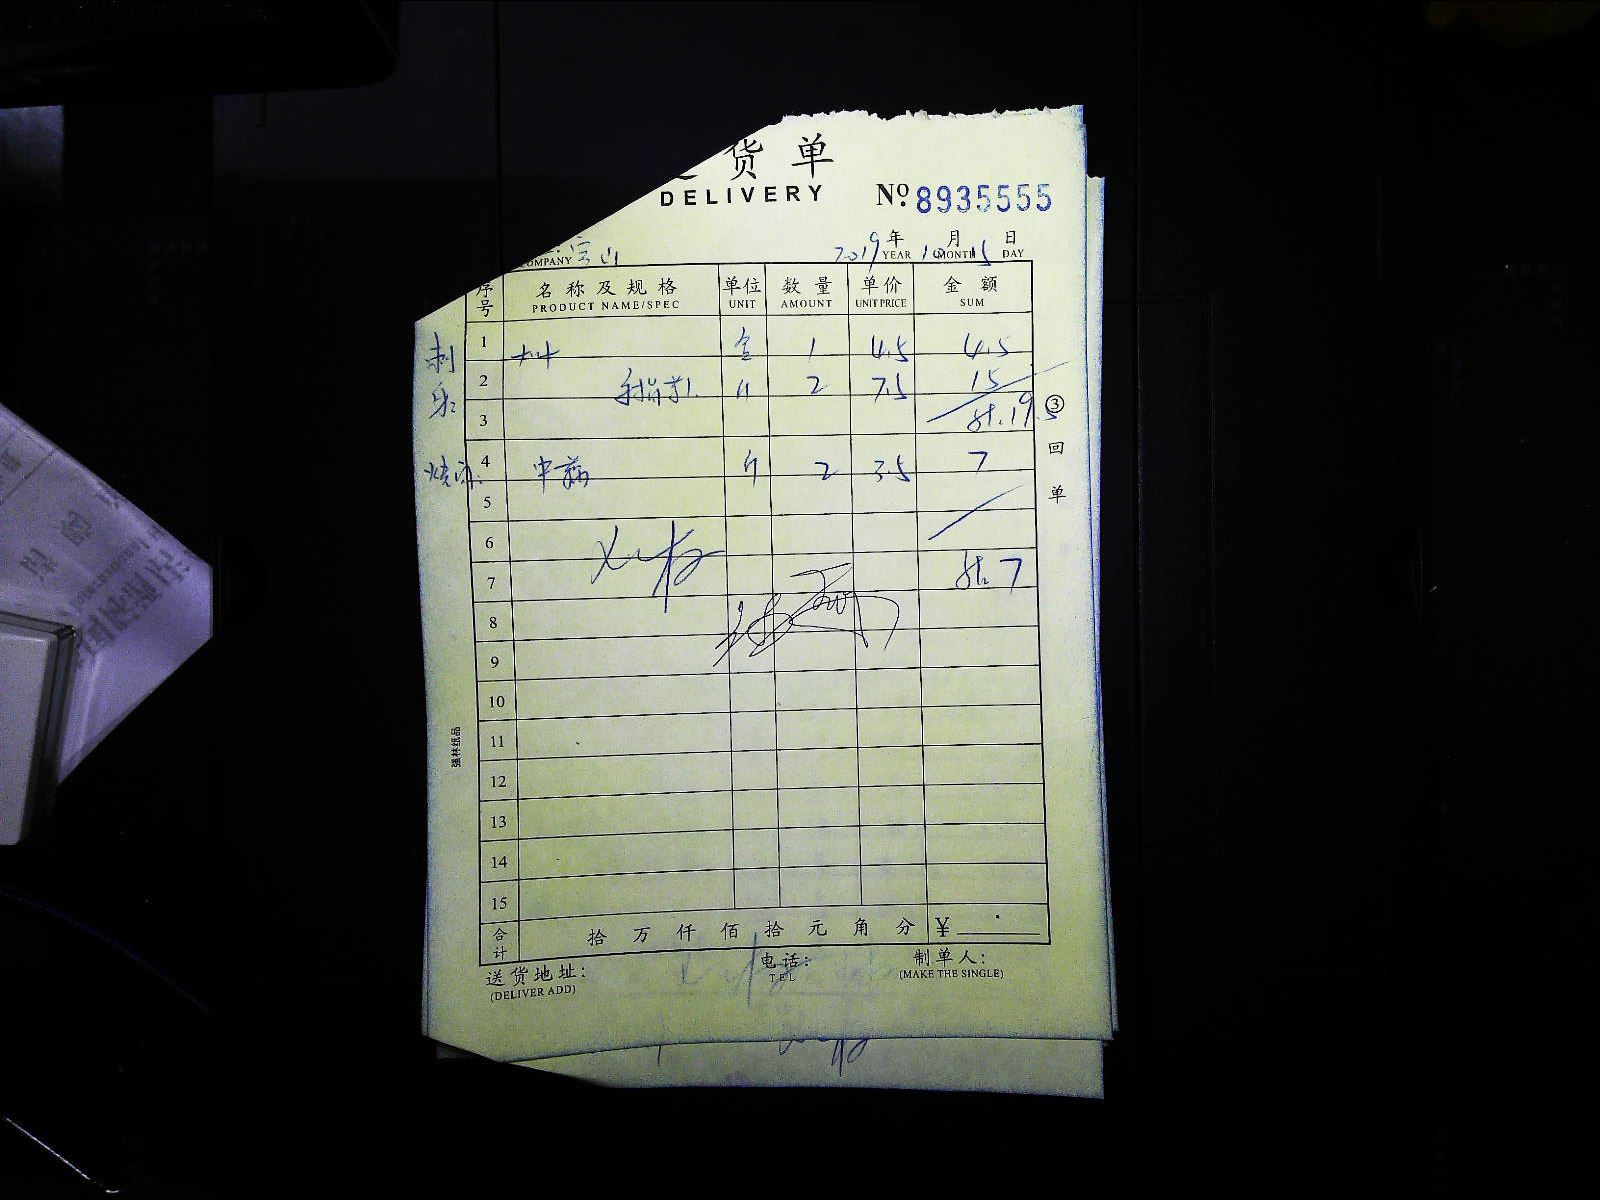 货单
DELIVERY
№ 8935555
COMPANY 宝山 2019年 YEAR 10月 MONTH 15日 DAY
序号 名称及规格 PRODUCT NAME/SPEC 单位 UNIT 数量 AMOUNT 单价 UNIT PRICE 金额 SUM
1 1 4.5 4.5
2 2 7.5 15
3 19.5
4 2 3.5 7
5
6
7 7
8
9
10
11
12
13
14
15
合计 拾 万 仟 佰 拾 元 角 分 ¥
送货地址: 电话: 制单人:
(DELIVER ADD) TEL (MAKE THE SINGLE)
③回单
强林纸品